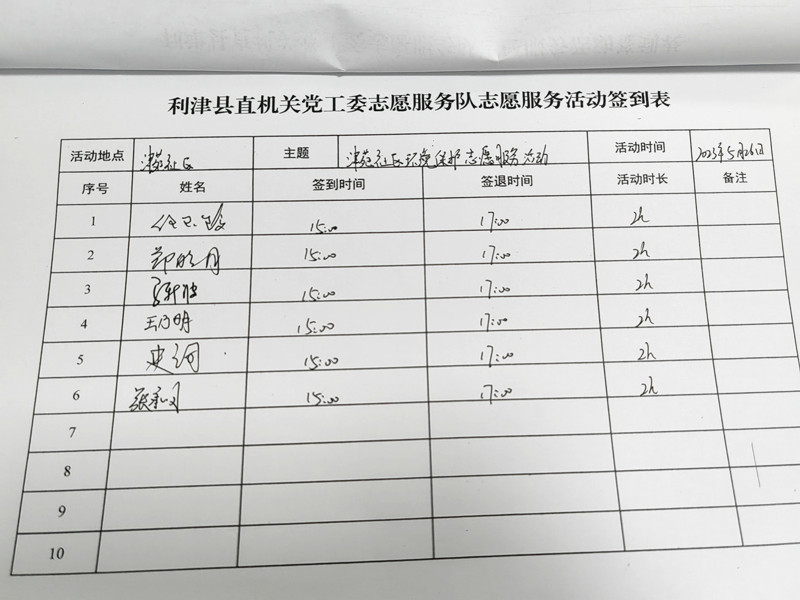 利津县直机关党工委志愿服务队志愿服务活动签到表
活动地点 津苑社区 主题 津苑社区环境保护志愿服务活动 活动时间 2023年5月26日
序号 姓名 签到时间 签退时间 活动时长 备注
1 15:00 17:00 2h
2 郑明月 15:00 17:00 2h
3 15:00 17:00 2h
4 15:00 17:00 2h
5 15:00 17:00 2h
6 15:00 17:00 2h
7
8
9
10